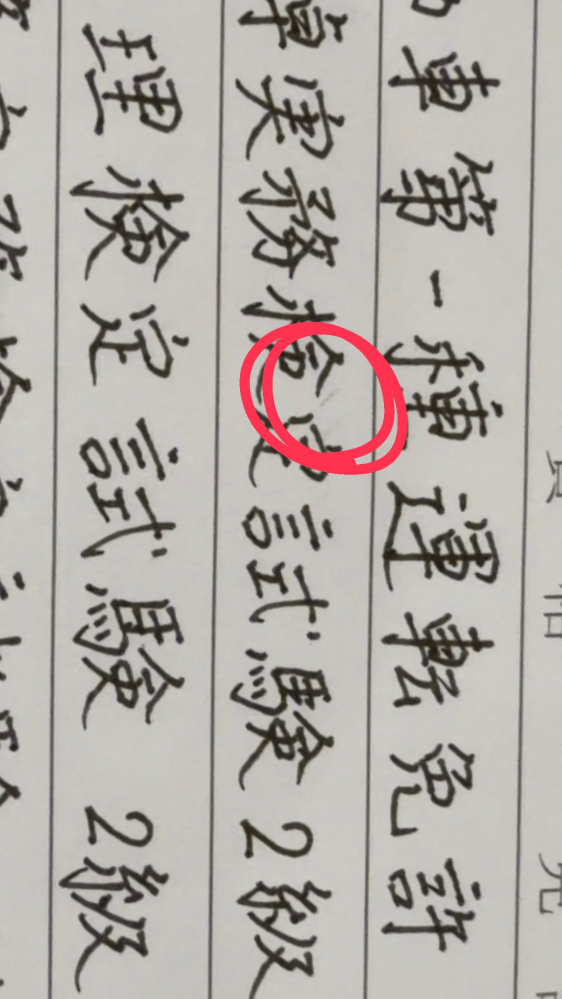 車第一種運転免許
卓実務検定試験2級
理検定試験 2級